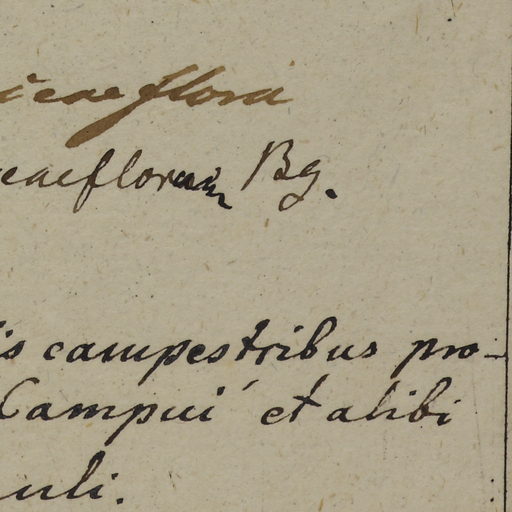 iceaeflora
ceaeflorum Bg.
is campestribus pro-
Campui et alibi
uli.